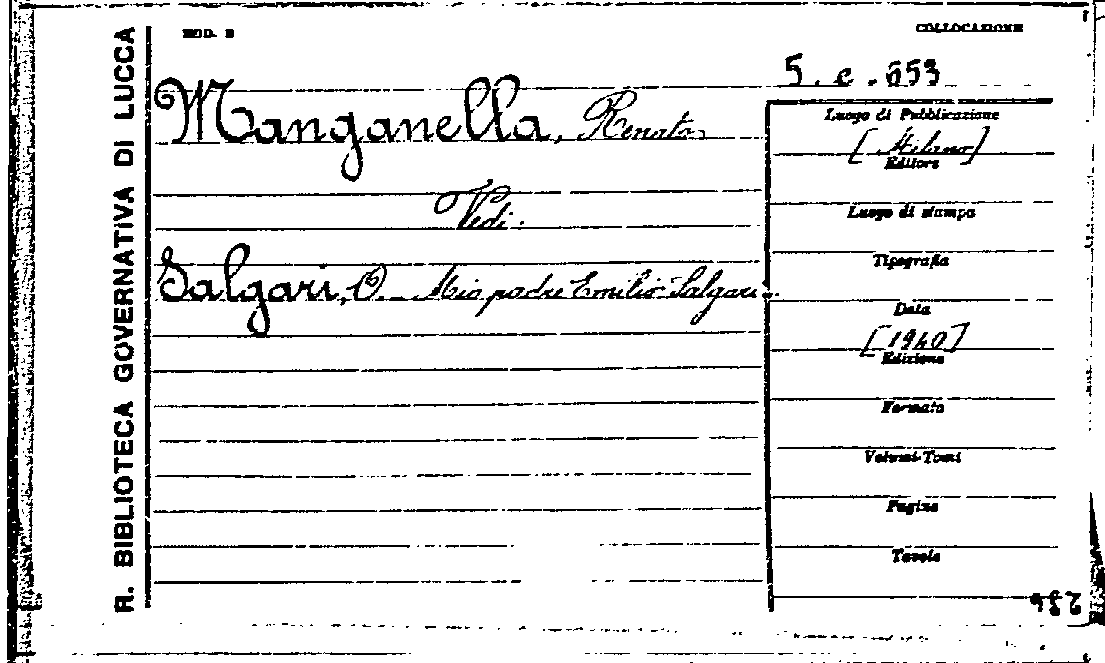 R. BIBLIOTECA GOVERNATIVA DI LUCCA
MOD. B
COLLOCAZIONE
5. c. 653
Manganella, Renato
Vedi:
Salgari, O. - Mio padre Emilio Salgari.
Luogo di Pubblicazione
[Milano]
Editore
Luogo di stampa
Tipografia
Data
[1940]
Edizione
Formato
Volumi-Tomi
Pagine
Tavole